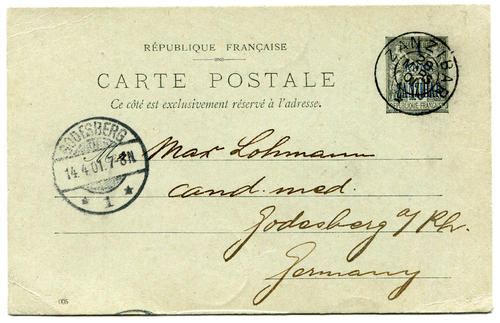 RÉPUBLIQUE FRANÇAISE
CARTE POSTALE
Ce côté est exclusivement réservé à l'adresse.
ZANZIBAR
RÉPUBLIQUE FRANÇAISE
GODESBERG
14.4.01.7-8N
* 1 *
Max Lohmann
cand. med.
Godesberg a/Rh.
Germany